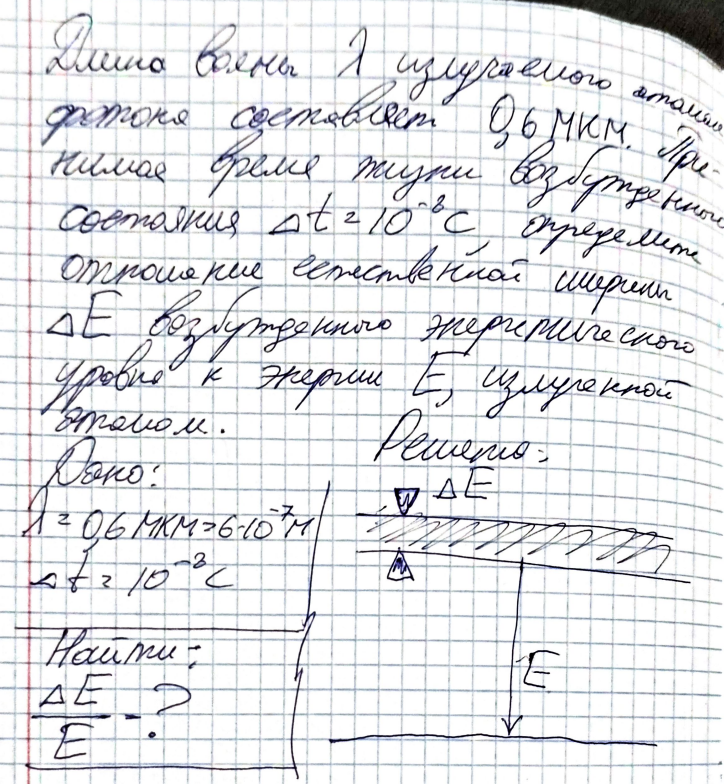 Длина волны λ излучаемого атомом
фотона составляет 0,6 мкм. При-
нимая время жизни возбужденного
состояния Δt = 10⁻⁸ с, определите
отношение естественной ширины
ΔE возбужденного энергетического
уровня к энергии E, излученной
атомом.
Дано:
λ = 0,6 мкм = 6·10⁻⁷ м
Δt = 10⁻⁸ с
Найти:
ΔE/E - ?
Решение:
ΔE
E